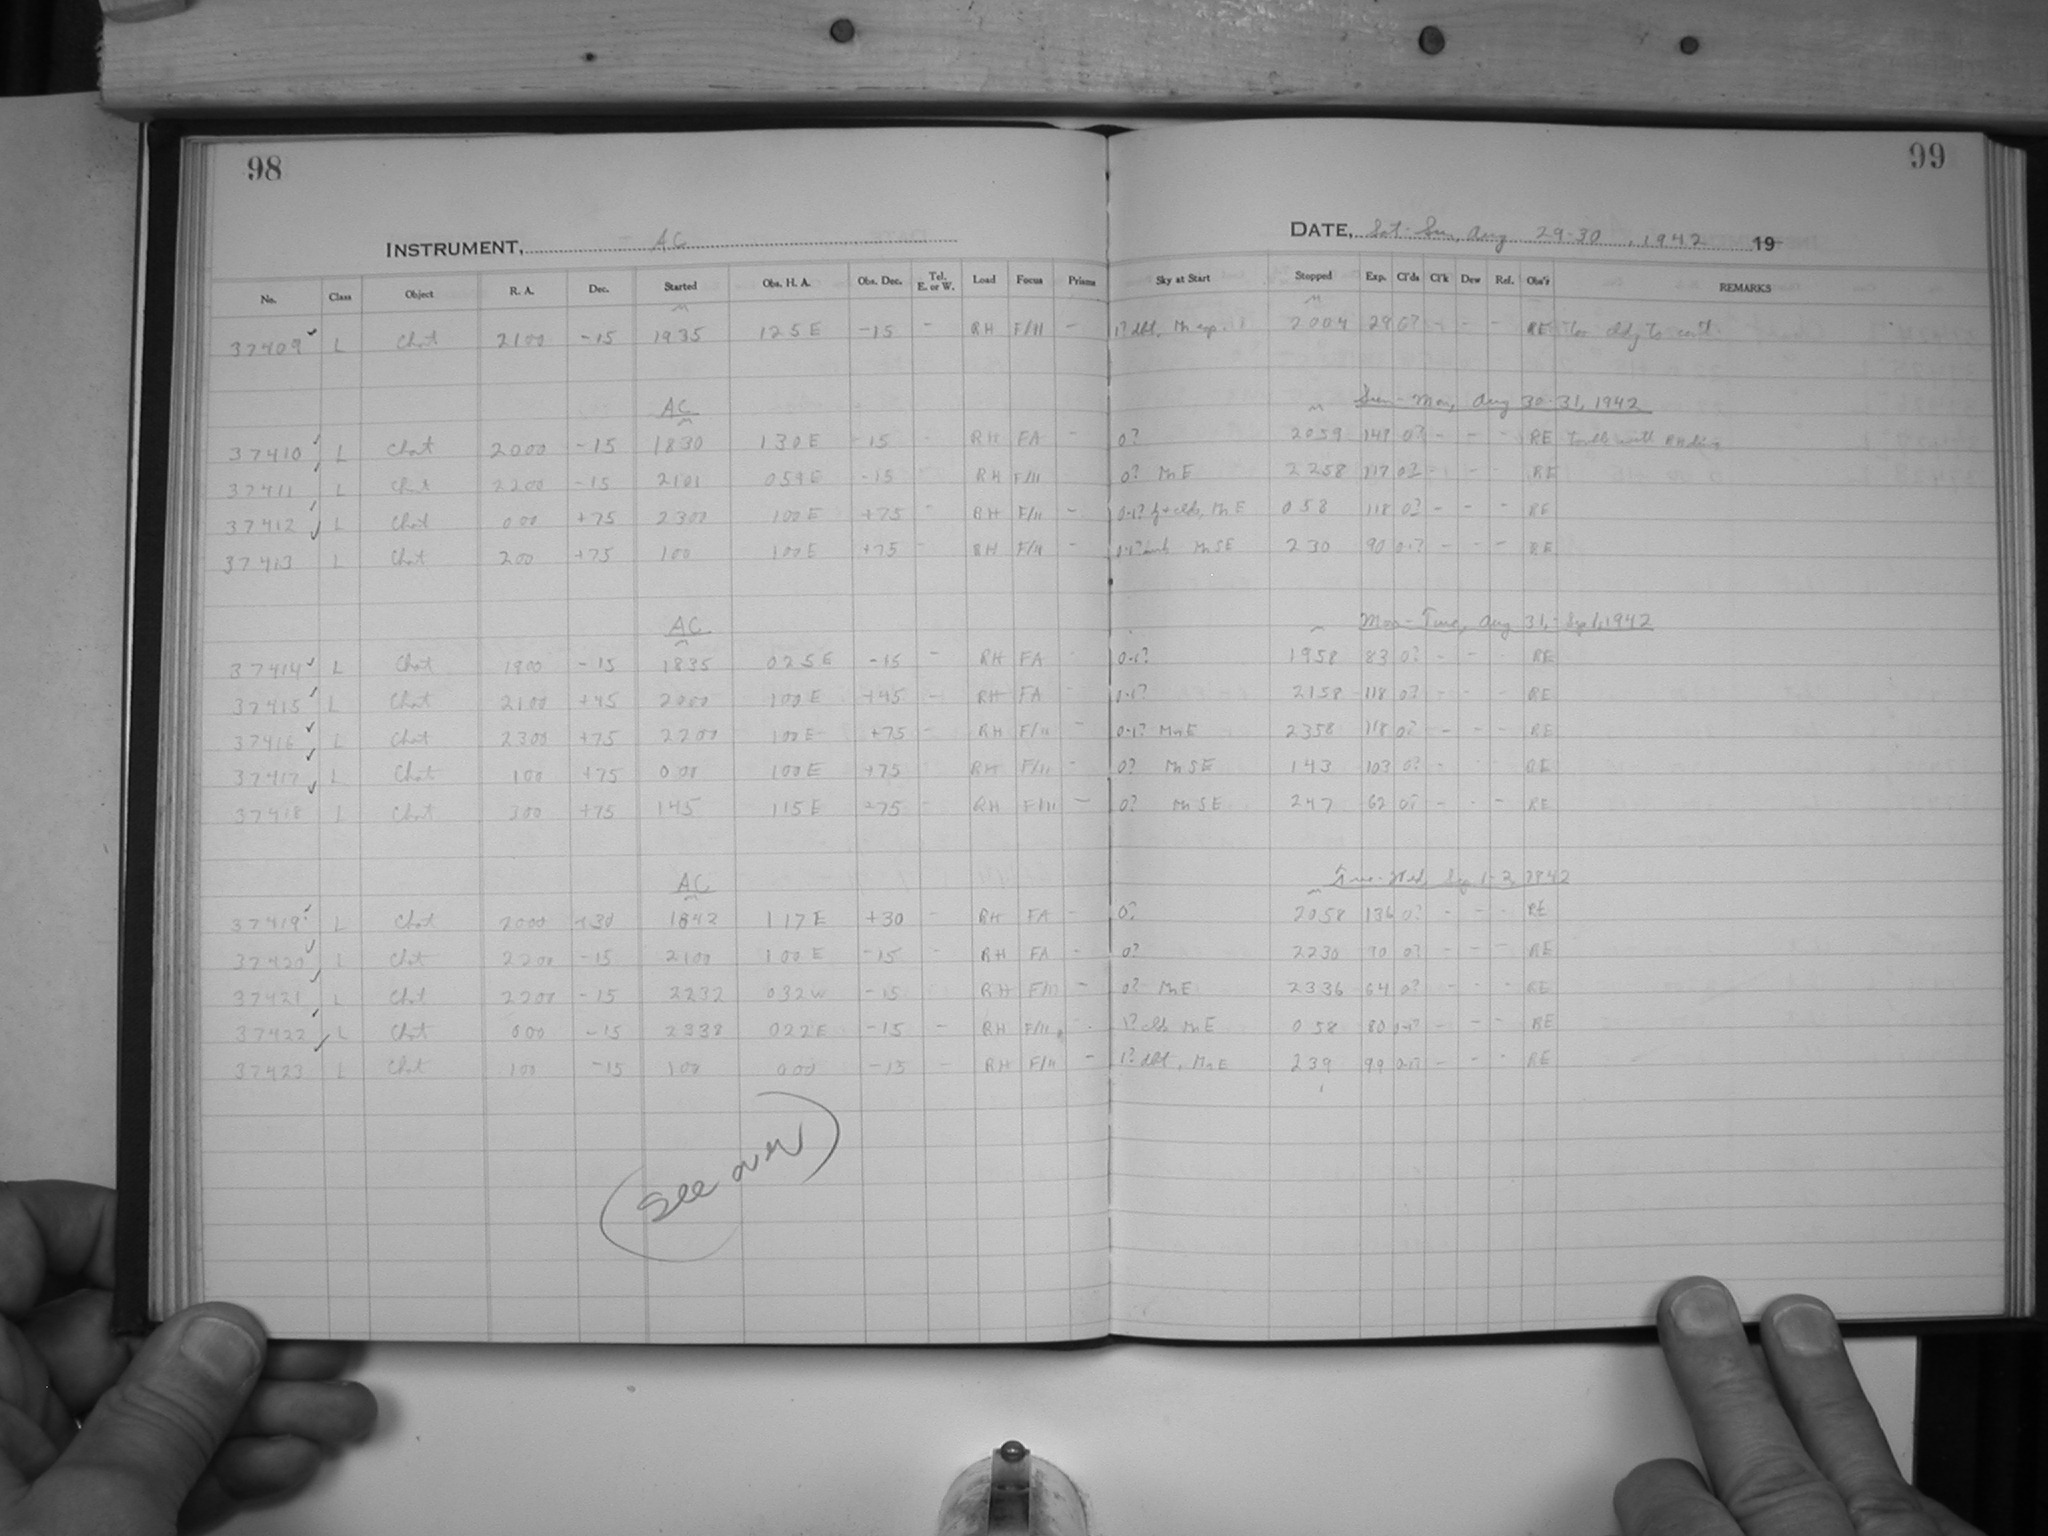 98
99
INSTRUMENT, AC
DATE, Sat-Sun, Aug 29-30, 1942 19
No. Class Object R. A. Dec. Started Obs. H. A. Obs. Dec. Tel. E. or W. Load Focus Prisms Sky at Start Stopped Exp. Cl'ds Cl'k Dew Ref. Obs'r REMARKS
37409 L Chart 2100 -15 1935 125E -15 - RH F/11 - 2004 29 - - RE Too cldy to cont.
AC Sun-Mon, Aug 30-31, 1942
37410 L Chart 2000 -15 1830 130E -15 - RH FA - 0? 2059 149 0? - - - RE
37411 L Chart 2200 -15 2101 059E -15 RH F/11 0? Mn E 2258 117 0? - - - RE
37412 L Chart 000 +75 2300 100E +75 - RH F/11 - Mn E 058 118 0? - - - RE
37413 L Chart 200 +75 100 100E +75 - RH F/11 - Mn SE 230 90 0-1? - - - RE
AC Mon-Tues, Aug 31,-Sep 1, 1942
37414 L Chart 1900 -15 1835 025E -15 - RH FA 0-1? 1958 83 0? - - - RE
37415 L Chart 2100 +45 2000 100E +45 - RH FA - 0-1? 2158 118 0? - - - RE
37416 L Chart 2300 +75 2200 100E +75 - RH F/11 - 0-1? Mn E 2358 118 0? - - - RE
37417 L Chart 100 +75 000 100E +75 - RH F/11 - 0? Mn SE 143 103 0? - - - RE
37418 L Chart 300 +75 145 115E +75 - RH F/11 - 0? Mn SE 247 62 0? - - - RE
AC Tues-Wed, Sep 1-2, 1942
37419 L Chart 2000 +30 1842 117E +30 - RH FA - 0? 2058 136 0? - - - RE
37420 L Chart 2200 -15 2100 100E -15 - RH FA - 0? 2230 90 0? - - - RE
37421 L Chart 2200 -15 2232 032W -15 - RH F/11 - 0? Mn E 2336 64 0? - - - RE
37422 L Chart 000 -15 2338 022E -15 - RH F/11 - 1? clds Mn E 058 80 0-1? - - - RE
37423 L Chart 100 -15 100 000 -15 - RH F/11 - 1? dbt, Mn E 239 99 - - - RE
(see over)